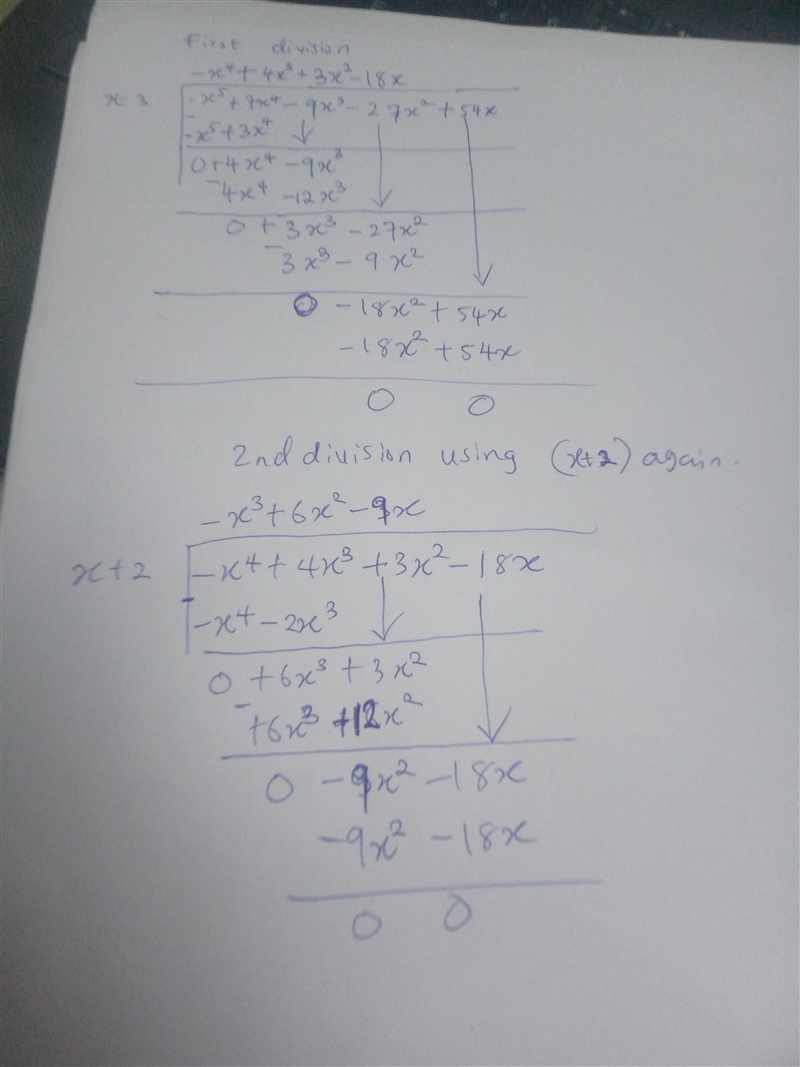 First division
-x⁴ + 4x³ + 3x² - 18x
x-3 -x⁵ + 7x⁴ - 9x³ - 27x² + 54x
- -x⁵ + 3x⁴
0 + 4x⁴ - 9x³
- 4x⁴ - 12x³
0 + 3x³ - 27x²
- 3x³ - 9x²
0 - 18x² + 54x
- 18x² + 54x
0 0
2nd division using (x+2) again.
-x³ + 6x² - 9x
x+2 -x⁴ + 4x³ + 3x² - 18x
- -x⁴ - 2x³
0 + 6x³ + 3x²
- +6x³ + 12x²
0 - 9x² - 18x
- 9x² - 18x
0 0